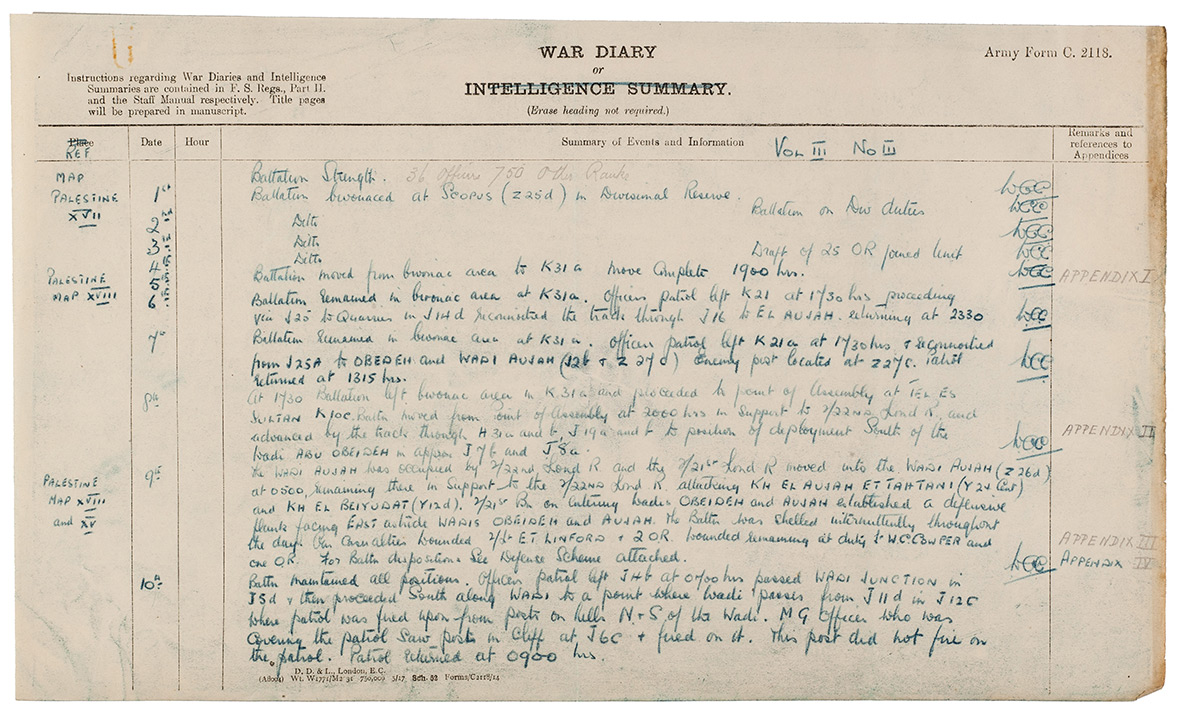 WAR DIARY
or
INTELLIGENCE SUMMARY.
(Erase heading not required.)
Army Form C. 2118.
Instructions regarding War Diaries and Intelligence
Summaries are contained in F. S. Regs., Part II.
and the Staff Manual respectively. Title pages
will be prepared in manuscript.
Place
REF
Date
Hour
Summary of Events and Information
VOL III No III
Remarks and
references to
Appendices
MAP
PALESTINE
XVII
Battalion Strength. 36 Officers 750 Other Ranks
WCC
1st
Battalion bivouaced at SCOPUS (Z25d) in Divisional Reserve.
WCC
2nd
Ditto
Battalion on Div duties
WCC
3rd
Ditto
4th
Ditto
Draft of 25 OR joined Unit
WCC
PALESTINE
MAP XVIII
5th
Battalion moved from bivouac area to K31a move complete 1900 hrs.
WCC
APPENDIX I
6th
Battalion remained in bivouac area at K31a. Officers patrol left K21 at 1730 hrs proceeding
via J25 to Quarries in J14d reconnoitred the track through J16 to EL AUJAH. returning at 2330
WCC
7th
Battalion remained in bivouac area at K31a. Officers patrol left K21a at 1730 hrs & reconnoitred
from J25A to OBEIDEH and WADI AUJAH (J2b & Z27d) Enemy post located at Z27C. Patrol
returned at 1315 hrs.
WCC
8th
At 1730 Battalion left bivouac area in K31a and proceeded to point of Assembly at TEL ES
SULTAN K10c. Battn moved from Point of Assembly at 2000 hrs in Support to 2/22ND Lond R. and
advanced by the track through H31a and b, J19a and b to position of deployment South of the
Wadi ABU OBEIDEH in approx J7b and J8a.
WCC
APPENDIX II
PALESTINE
MAP XVIII
and XV
9th
The WADI AUJAH was occupied by 2/22nd Lond R and the 2/21st Lond R moved into the WADI AUJAH (Z26d)
at 0500, remaining there in Support to the 2/22ND Lond R. attacking KH EL AUJAH ET TAHTANI (Y2d Cent)
and KH EL BEIYUDAT (Y12d). 2/21st Bn on entering Wadis OBEIDEH and AUJAH established a defensive
flank facing EAST astride WADIS OBEIDEH and AUJAH. The Battn was shelled intermittently throughout
the day. Our Casualties wounded 2/Lt E T LINFORD + 2 OR. wounded remaining at duty Lt W C COWPER and
one OR. For Battn dispositions See Defence Scheme attached.
WCC
APPENDIX III
APPENDIX IV
10th
Battn maintained all positions. Officers patrol left J4b at 0700 hrs passed WADI JUNCTION in
J5d & then proceeded South along WADI to a point where Wadi passes from J11d in J12C
where patrol was fired upon from posts on hills N + S of the Wadi. MG Officer who was
covering the patrol saw post in Cliff at J6C + fired on it. This post did not fire on
the patrol. Patrol returned at 0900 hrs.
D. D. & L., London, E.C.
(A8004) Wt. W1771/M2 31 750,000 5/17 Sch. 52 Forms/C2118/14